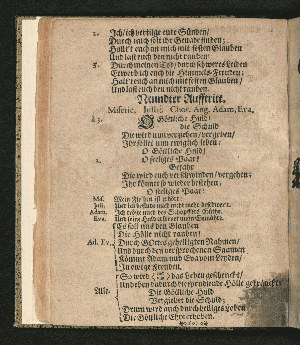 2. Ich/ ich vertilge eure Sünden/
Durch mich solt ihr Gnade finden;
Halt't euch an mich mit festen Glauben
Und last euch den nicht rauben!
3. Durch meinen Tod/ durch schweres Leiden
Erwerb ich euch die Himmels-Freuden;
Halt't euch an mich mit festen Glauben/
Und last euch den nicht rauben.
Neundter Aufftritt.
Miseric. Justit. Chor. Ang. Adam, Eva,
à 3. O Göttliche Huld/
die Schuld
Die wird nun verziehen/vergeben/
Ihr sollet nun ewiglich leben:
O Göttliche Huld!
2. O seeliges Paar!
Gefahr
Die wird euch verschwinden/vergehen;
Ihr könnet so wieder bestehen/
O seeliges Paar!
Mis. Mein Flehen ist erhört:
Just.
Adam.
Eva.
Es soll uns den Glauben
Die Hölle nicht rauben/
Ad. Ev. Durch Gottes geheiligten Nahmen/
Und durch den versprochenen Saamen
Kömmt Adam und Eva vom
In ewige Freuden.
So wird das Leben geschencket/
Alle.
Die Göttliche Huld
Vergiebet die Schuld;
Drum wird auch durch heiliges Leben
Die Göttliche Ehre erheben.